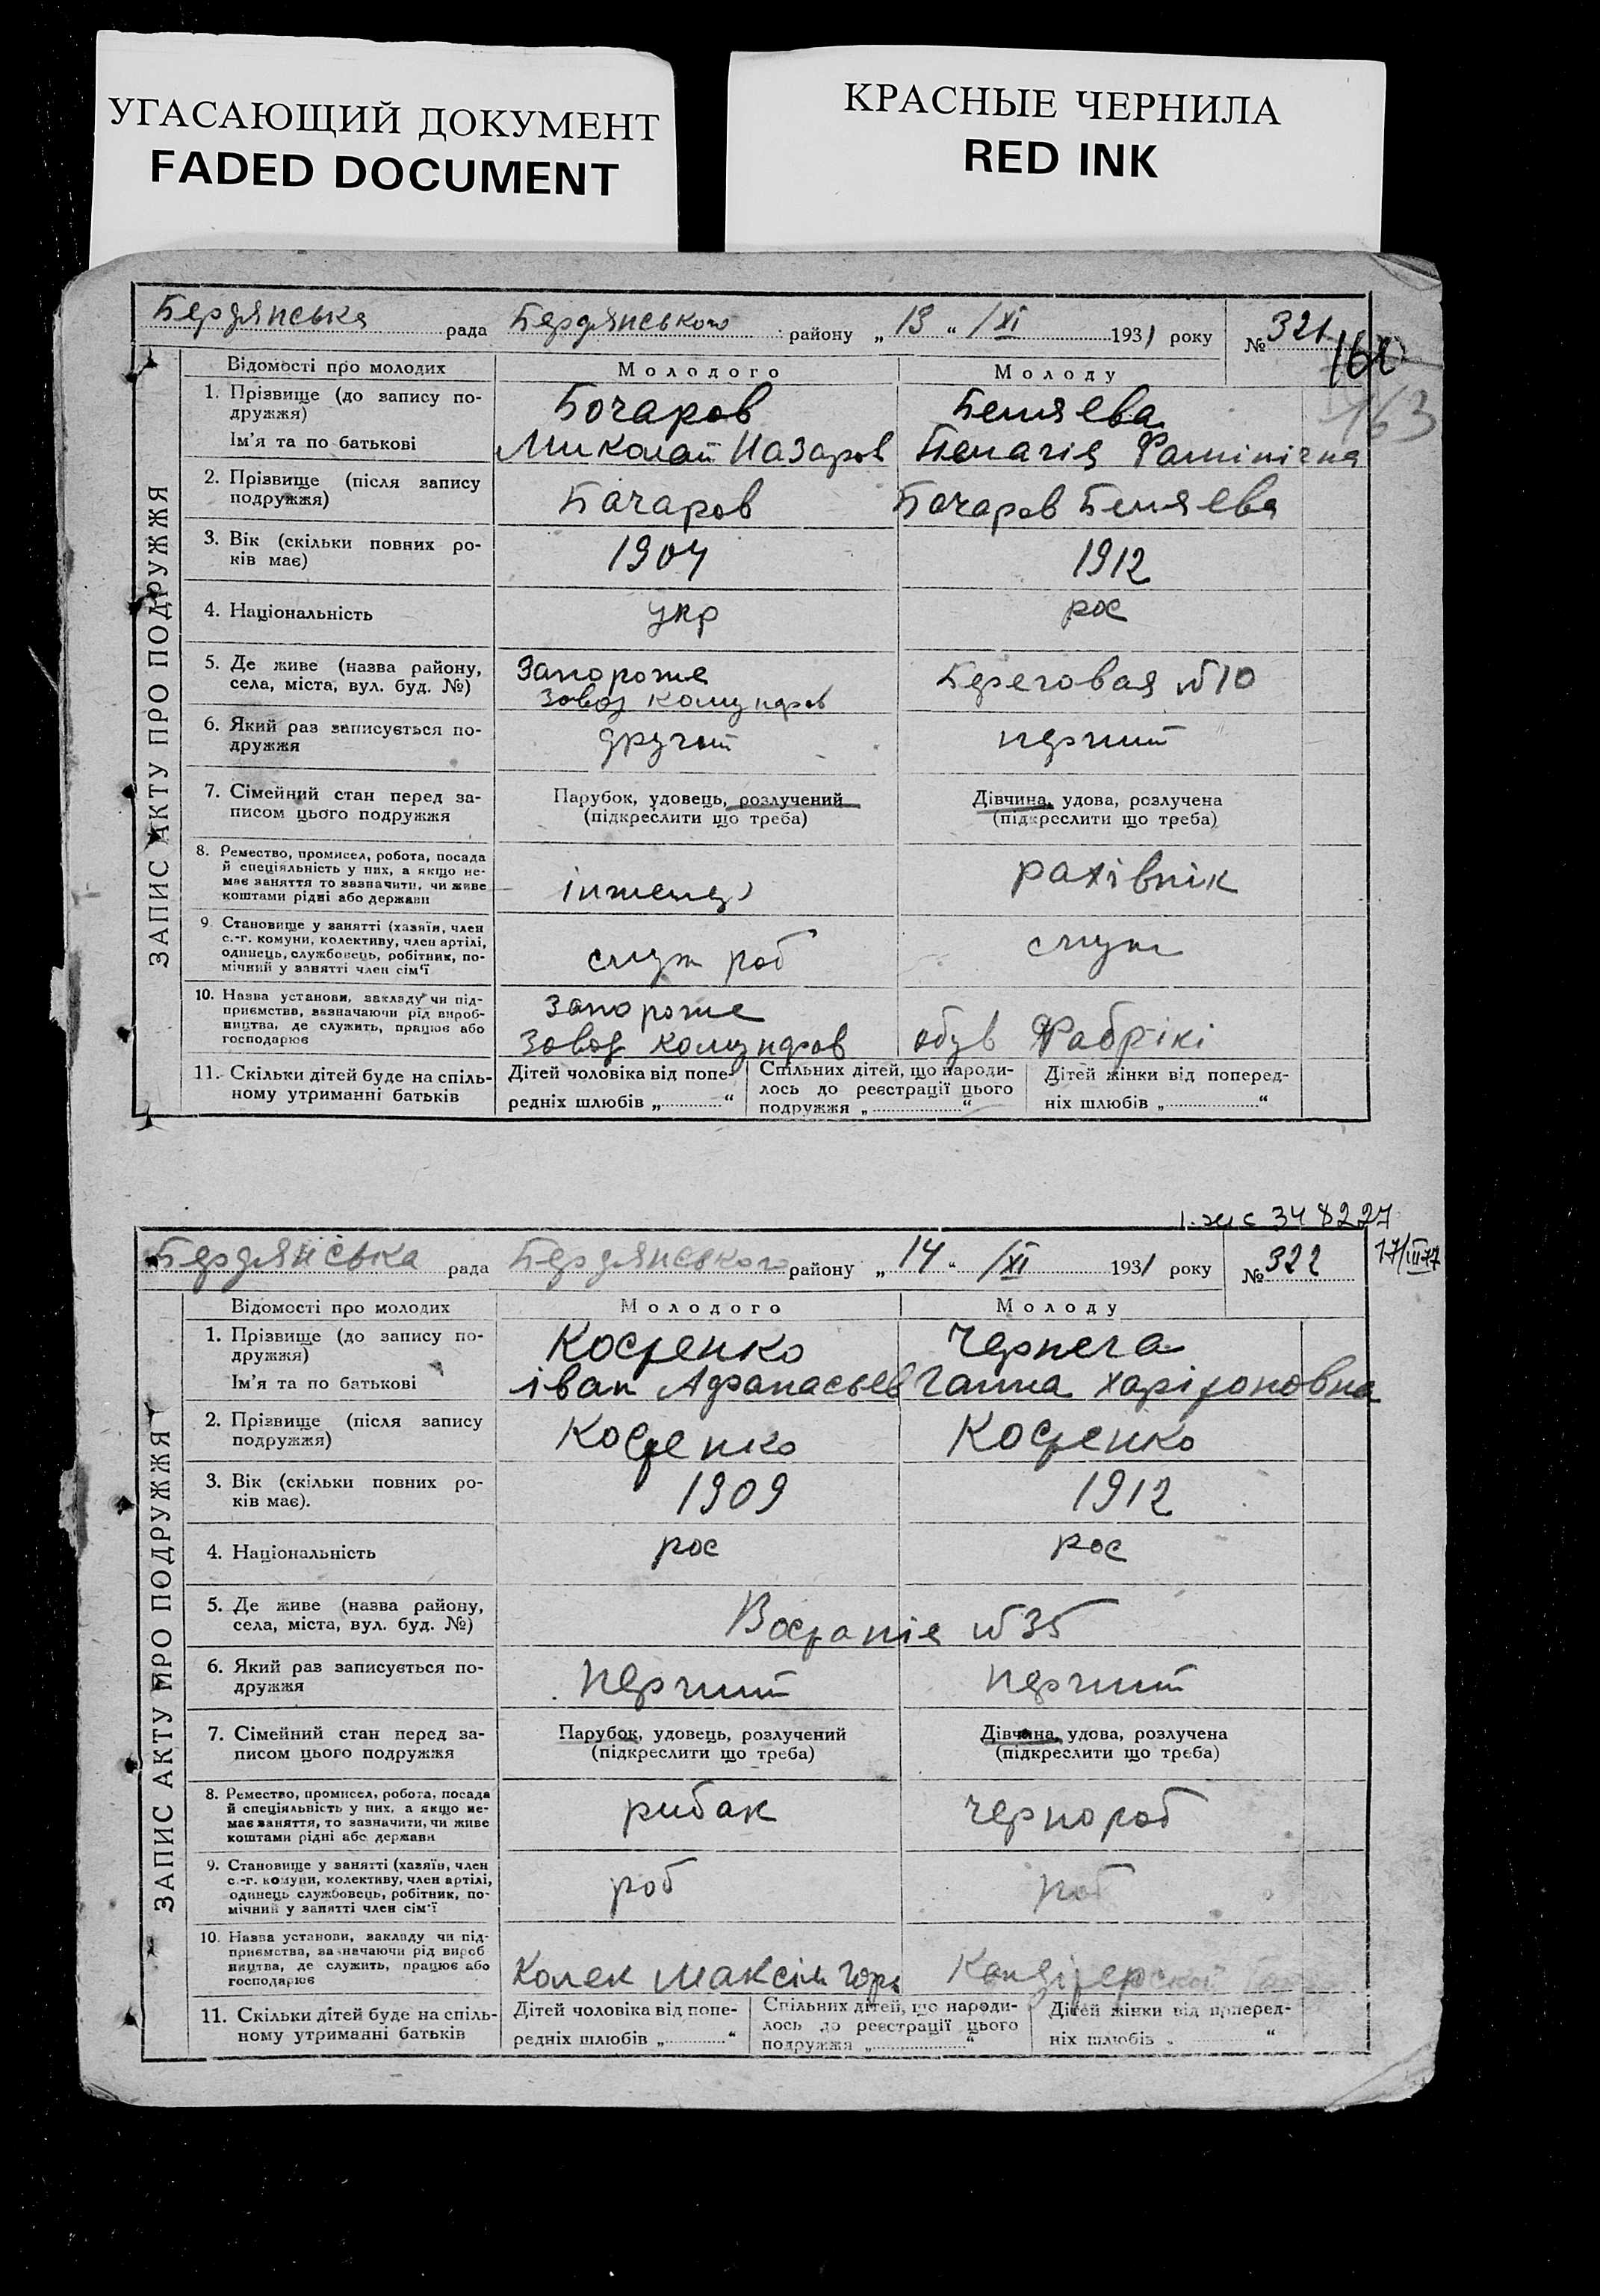 УГАСАЮЩИЙ ДОКУМЕНТ
FADED DOCUMENT
КРАСНЫЕ ЧЕРНИЛА
RED INK
Бердянська рада Бердянського району „13“ /XI 1931 року № 321
162
163
ЗАПИС АКТУ ПРО ПОДРУЖЖЯ
Відомості про молодих Молодого Молоду
1. Прізвище (до запису по-дружжя) Бочаров Беляева
Ім'я та по батькові Миколай Назаров Пелагія
2. Прізвище (після запису подружжя) Бачаров Бачаров Беляева
3. Вік (скільки повних ро-ків має) 1904 1912
4. Національність укр рос
5. Де живе (назва району, села, міста, вул. буд. №) Запороже Завод Комунаров Береговая №10
6. Який раз записується по-дружжя другий перший
7. Сімейний стан перед за-писом цього подружжя Парубок, удовець, розлучений (підкреслити що треба) Дівчина, удова, розлучена (підкреслити що треба)
8. Ремество, промисел, робота, посада й спеціяльність у них, а якщо не-має заняття то зазначити, чи живе коштами рідні або держави інженер рахівнік
9. Становище у занятті (хазяїн, член с.-г. комуни, колективу, член артілі, одинець, службовець, робітник, по-мічний у занятті член сім'ї служ роб служ
10. Назва установи, закладу чи під-приємства, зазначаючи рід вироб-ництва, де служить, працює або господарює Запороже Завод Комунаров обув Фабрікі
11. Скільки дітей буде на спіль-ному утриманні батьків Дітей чоловіка від попе-редніх шлюбів „ “ Спільних дітей, що народи-лось до реєстрації цього подружжя „ “ Дітей жінки від поперед-ніх шлюбів „ “
348227
17/III 77
Бердянська рада Бердянського району „14“ /XI 1931 року № 322
ЗАПИС АКТУ ПРО ПОДРУЖЖЯ
Відомості про молодих Молодого Молоду
1. Прізвище (до запису по-дружжя) Костенко Чернега
Ім'я та по батькові Іван Афанасьев Ганна Харітоновна
2. Прізвище (після запису подружжя) Костенко Костенко
3. Вік (скільки повних ро-ків має). 1909 1912
4. Національність рос рос
5. Де живе (назва району, села, міста, вул. буд. №) Востаніє №35
6. Який раз записується по-дружжя перший перший
7. Сімейний стан перед за-писом цього подружжя Парубок, удовець, розлучений (підкреслити що треба) Дівчина, удова, розлучена (підкреслити що треба)
8. Ремество, промисел, робота, посада й спеціяльність у них, а якщо не-має заняття, то зазначити, чи живе коштами рідні або держави рибак чернороб
9. Становище у занятті (хазяїн, член с.-г. комуни, колективу, член артілі, одинець службовець, робітник, по-мічний у занятті член сім'ї роб роб
10. Назва установи, закладу чи під-приємства, зазначаючи рід вироб ництва, де служить, працює або господарює Колек Максім Горь Кондітерской
11. Скільки дітей буде на спіль-ному утриманні батьків Дітей чоловіка від попе-редніх шлюбів „ “ Спільних дітей, що народи-лось до реєстрації цього подружжя „ “ Дітей жінки від поперед-ніх шлюбів „ “